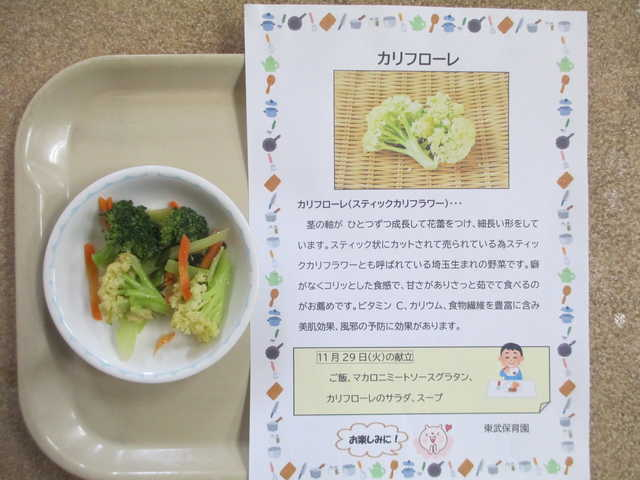 カリフローレ
カリフローレ(スティックカリフラワー)・・・
茎の軸が ひとつずつ成長して花蕾をつけ、細長い形をして
います。スティック状にカットされて売られている為スティッ
クカリフラワーとも呼ばれている埼玉生まれの野菜です。癖
がなくコリッとした食感で、甘さがありさっと茹でて食べるの
がお薦めです。ビタミン C、カリウム、食物繊維を豊富に含み
美肌効果、風邪の予防に効果があります。
11月29日(火)の献立
ご飯、マカロニミートソースグラタン、
カリフローレのサラダ、スープ
お楽しみに!
東武保育園